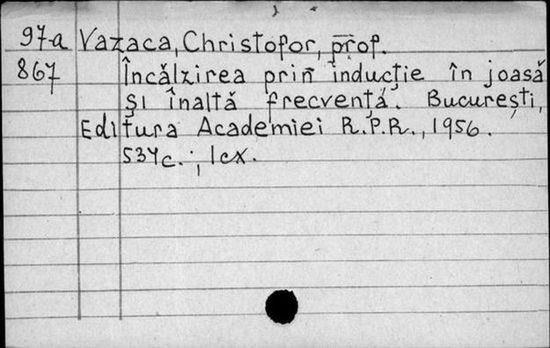 97-a Vazaca, Christofor, prof.
867 Încălzirea prin inducţie în joasă
şi înaltă frecvenţă. Bucureşti,
Editura Academiei R.P.R., 1956.
534c.; 1ex.